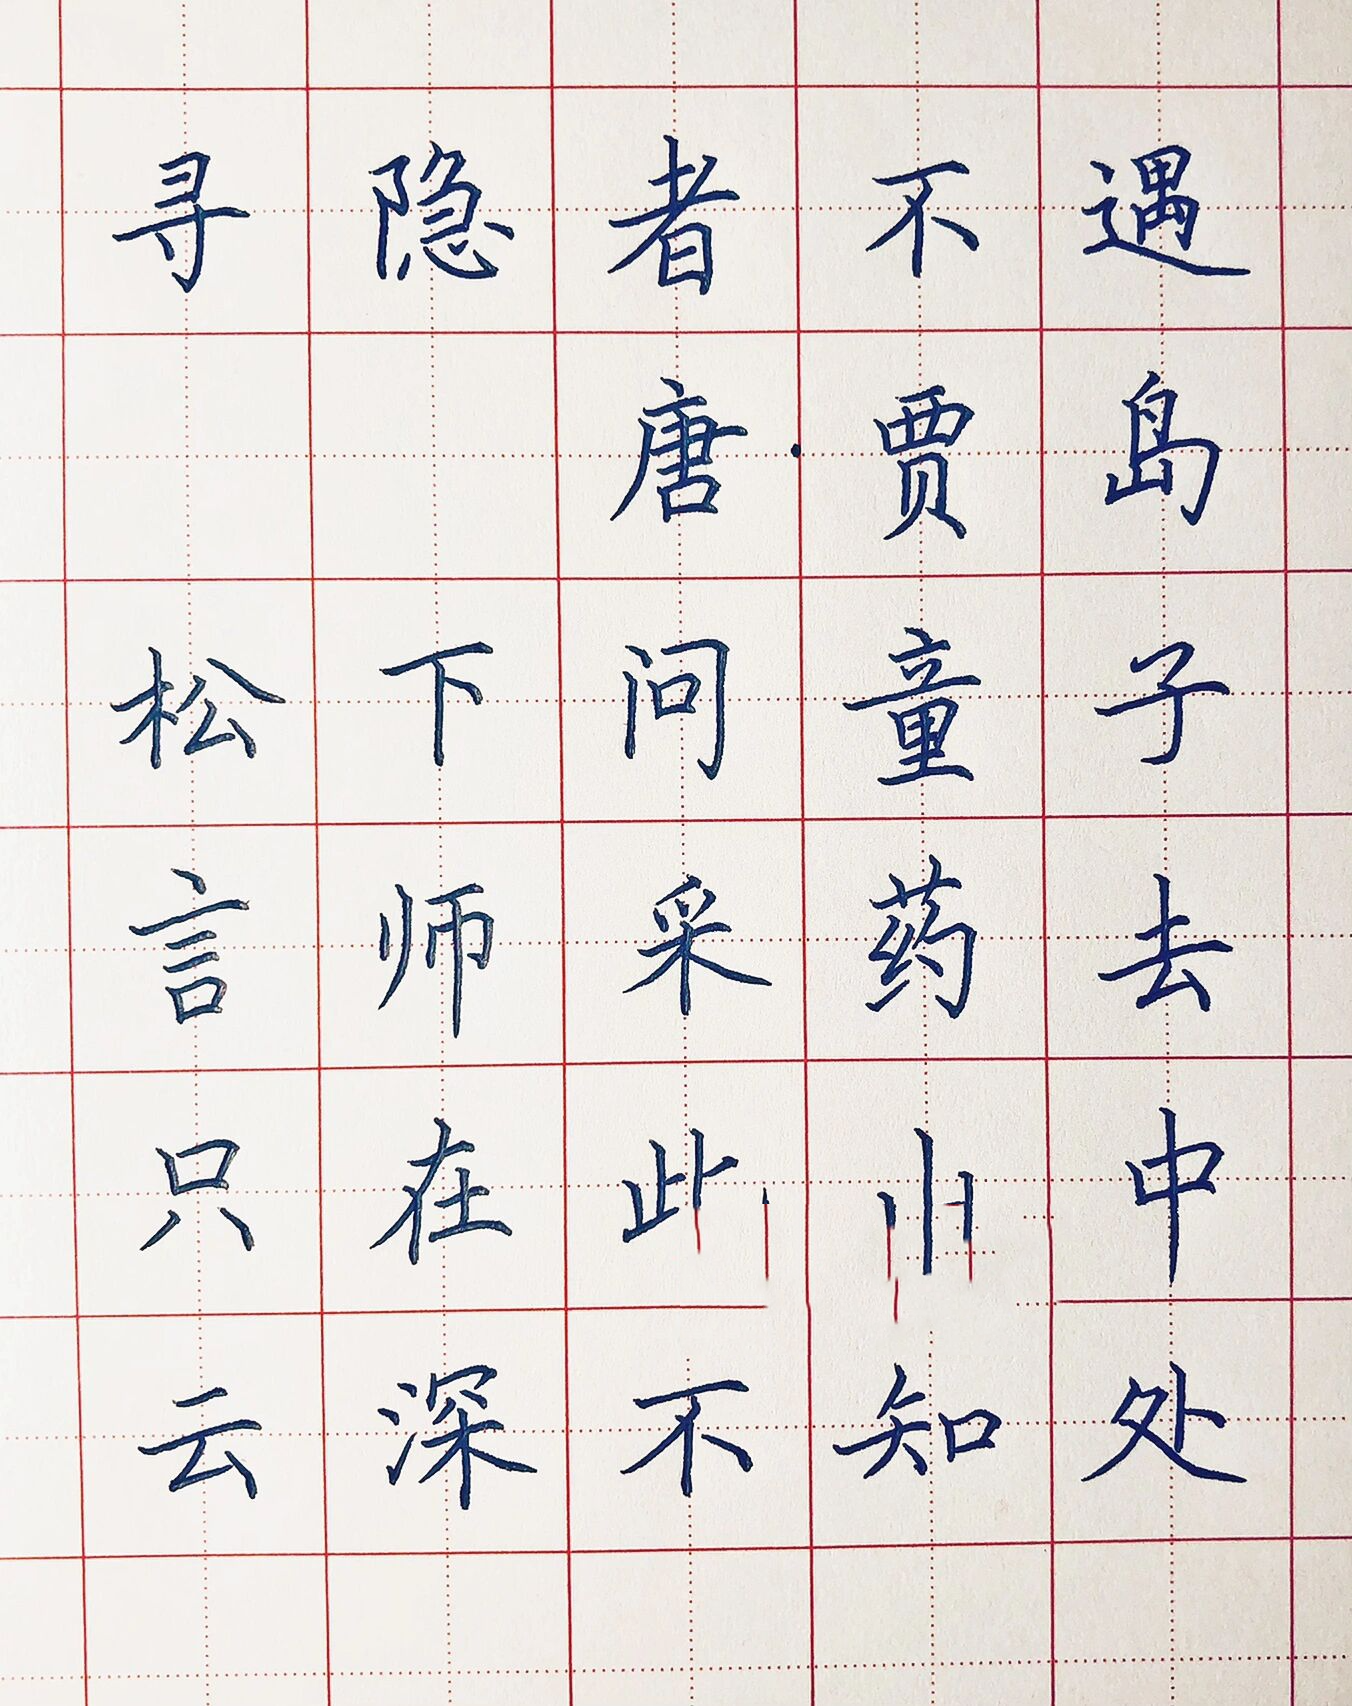 寻隐者不遇
唐·贾岛
松下问童子
言师采药去
只在此中
云深不知处